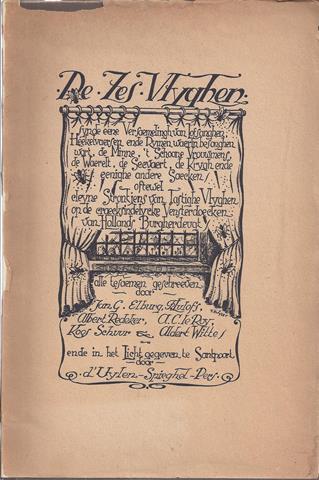 De · Zes · Vlyghen
synde eene Versoemelingh van lofsanghen,
Heekelvaersen, ende Rymen, waerin besonghen
wort, de Minne, 't Schoone Vrouwmens,
de Waerelt, de Seevaert, de Krygh, ende
eenighe andere Saecken,
oftewel
cleyne Strontjens van Lastighe Vlyghen
op de
Vensterdoecken
van Hollands Burgherdeught
alle tesaemen geschreeven
door
Jan G. Elburg,
Albert Redeker, A.C. le Roy,
Koos Schuur & Aldert Witte/
ende in het Licht gegeven te Santpoort
door
d'Uylen-Spieghel-Pers.